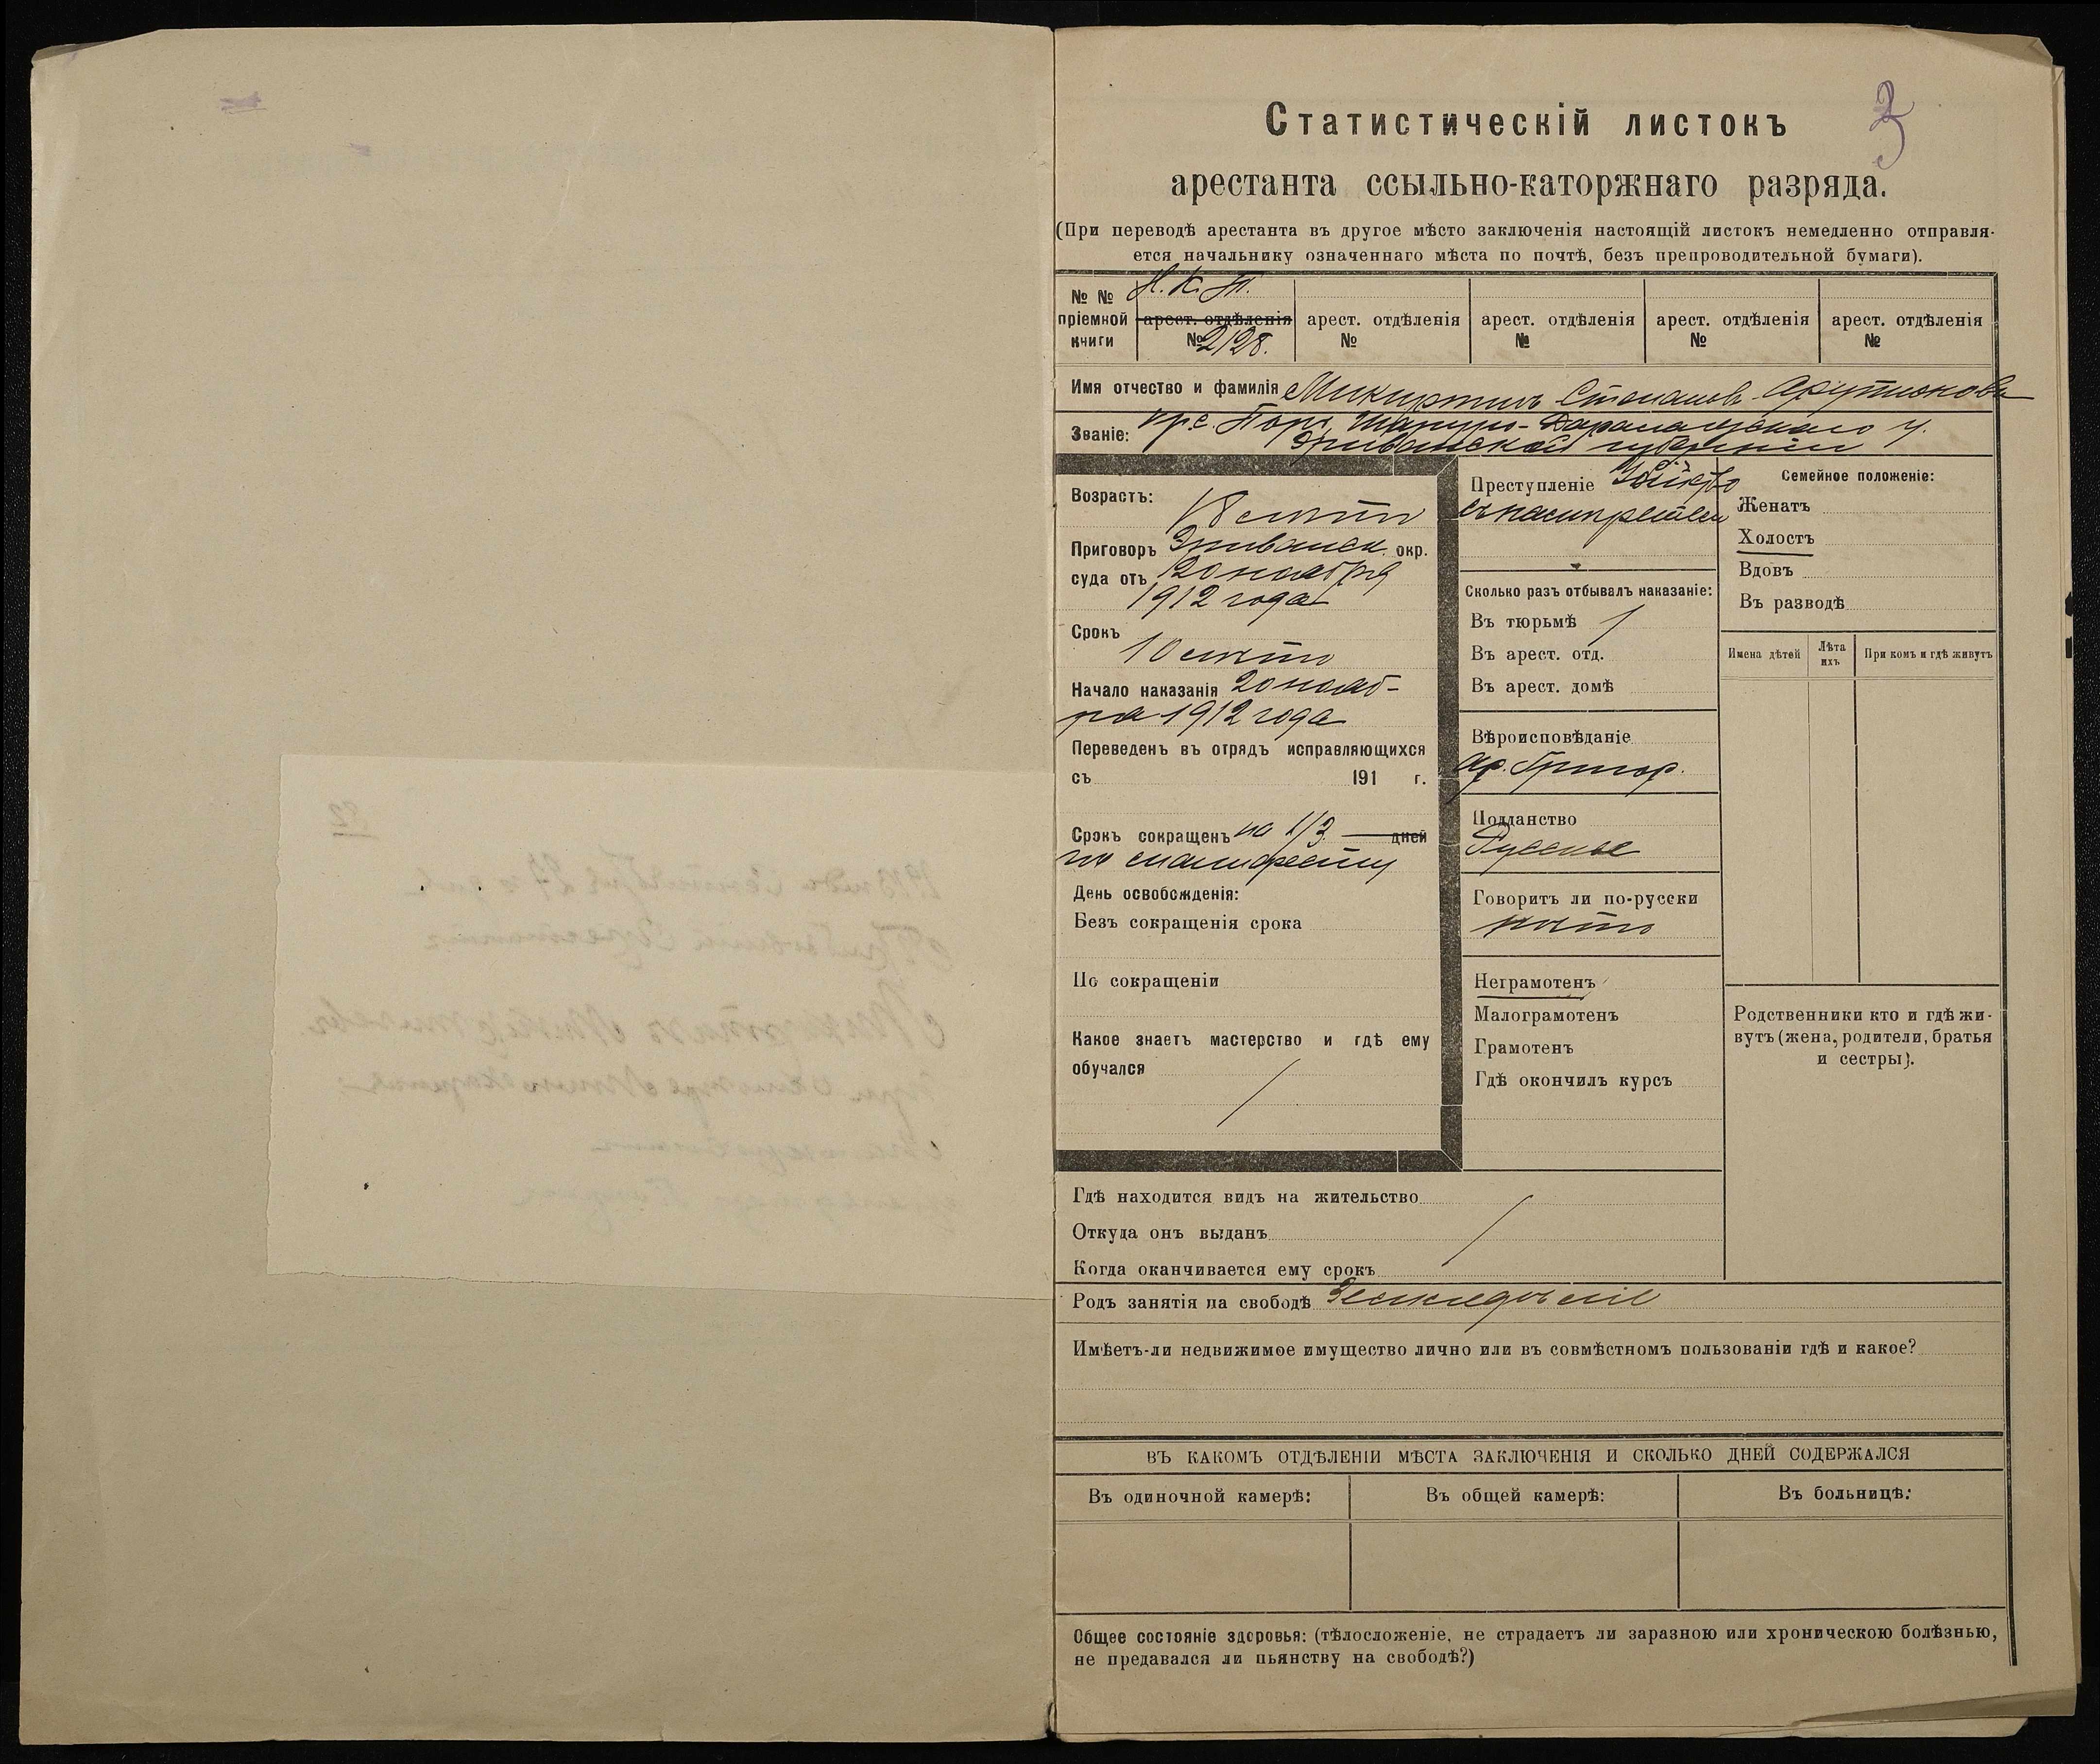 3
Статистическій листокъ
арестанта ссыльно-каторжнаго разряда.
(При переводѣ арестанта въ другое мѣсто заключенія настоящій листокъ немедленно отправля-
ется начальнику означеннаго мѣста по почтѣ, безъ препроводительной бумаги).
№ № пріемной книги
Н. К. Т.
арест. отдѣленія
№ 2128.
арест. отдѣленія
№
арест. отдѣленія
№
арест. отдѣленія
№
арест. отдѣленія
№
Имя отчество и фамилія Микиртичъ Степановъ Арутюновъ
Званіе: кр. с. Шаруро-Даралагезскаго у.
Эриванской губерніи
Возрастъ:
18 лѣтъ
Приговоръ Эриванск. окр.
суда отъ 20 ноября
1912 года
Срокъ
10 лѣтъ
Начало наказанія 20 нояб-
ря 1912 года
Переведенъ въ отрядъ исправляющихся
съ 191 г.
Срокъ сокращенъ на 1/3 дней
по манифесту
День освобожденія:
Безъ сокращенія срока
По сокращеніи
Какое знаетъ мастерство и гдѣ ему
обучался
Преступленіе Убійство
Сколько разъ отбывалъ наказаніе:
Въ тюрьмѣ
Въ арест. отд.
Въ арест. домѣ
Вѣроисповѣданіе
Ар. Григор.
Подданство
Русское
Говоритъ ли по-русски
нѣтъ
Неграмотенъ
Малограмотенъ
Грамотенъ
Гдѣ окончилъ курсъ
Семейное положеніе:
Женатъ
Холостъ
Вдовъ
Въ разводѣ
Имена дѣтей
Лѣта ихъ
При комъ и гдѣ живутъ
Родственники кто и гдѣ жи-
вутъ (жена, родители, братья
и сестры).
Гдѣ находится видъ на жительство
Откуда онъ выданъ
Когда оканчивается ему срокъ
Родъ занятія на свободѣ Земледѣліе
Имѣетъ-ли недвижимое имущество лично или въ совмѣстномъ пользованіи гдѣ и какое?
ВЪ КАКОМЪ ОТДѢЛЕНІИ МѢСТА ЗАКЛЮЧЕНІЯ И СКОЛЬКО ДНЕЙ СОДЕРЖАЛСЯ
Въ одиночной камерѣ:
Въ общей камерѣ:
Въ больницѣ:
Общее состояніе здоровья: (тѣлосложеніе, не страдаетъ ли заразною или хроническою болѣзнью,
не предавался ли пьянству на свободѣ?)